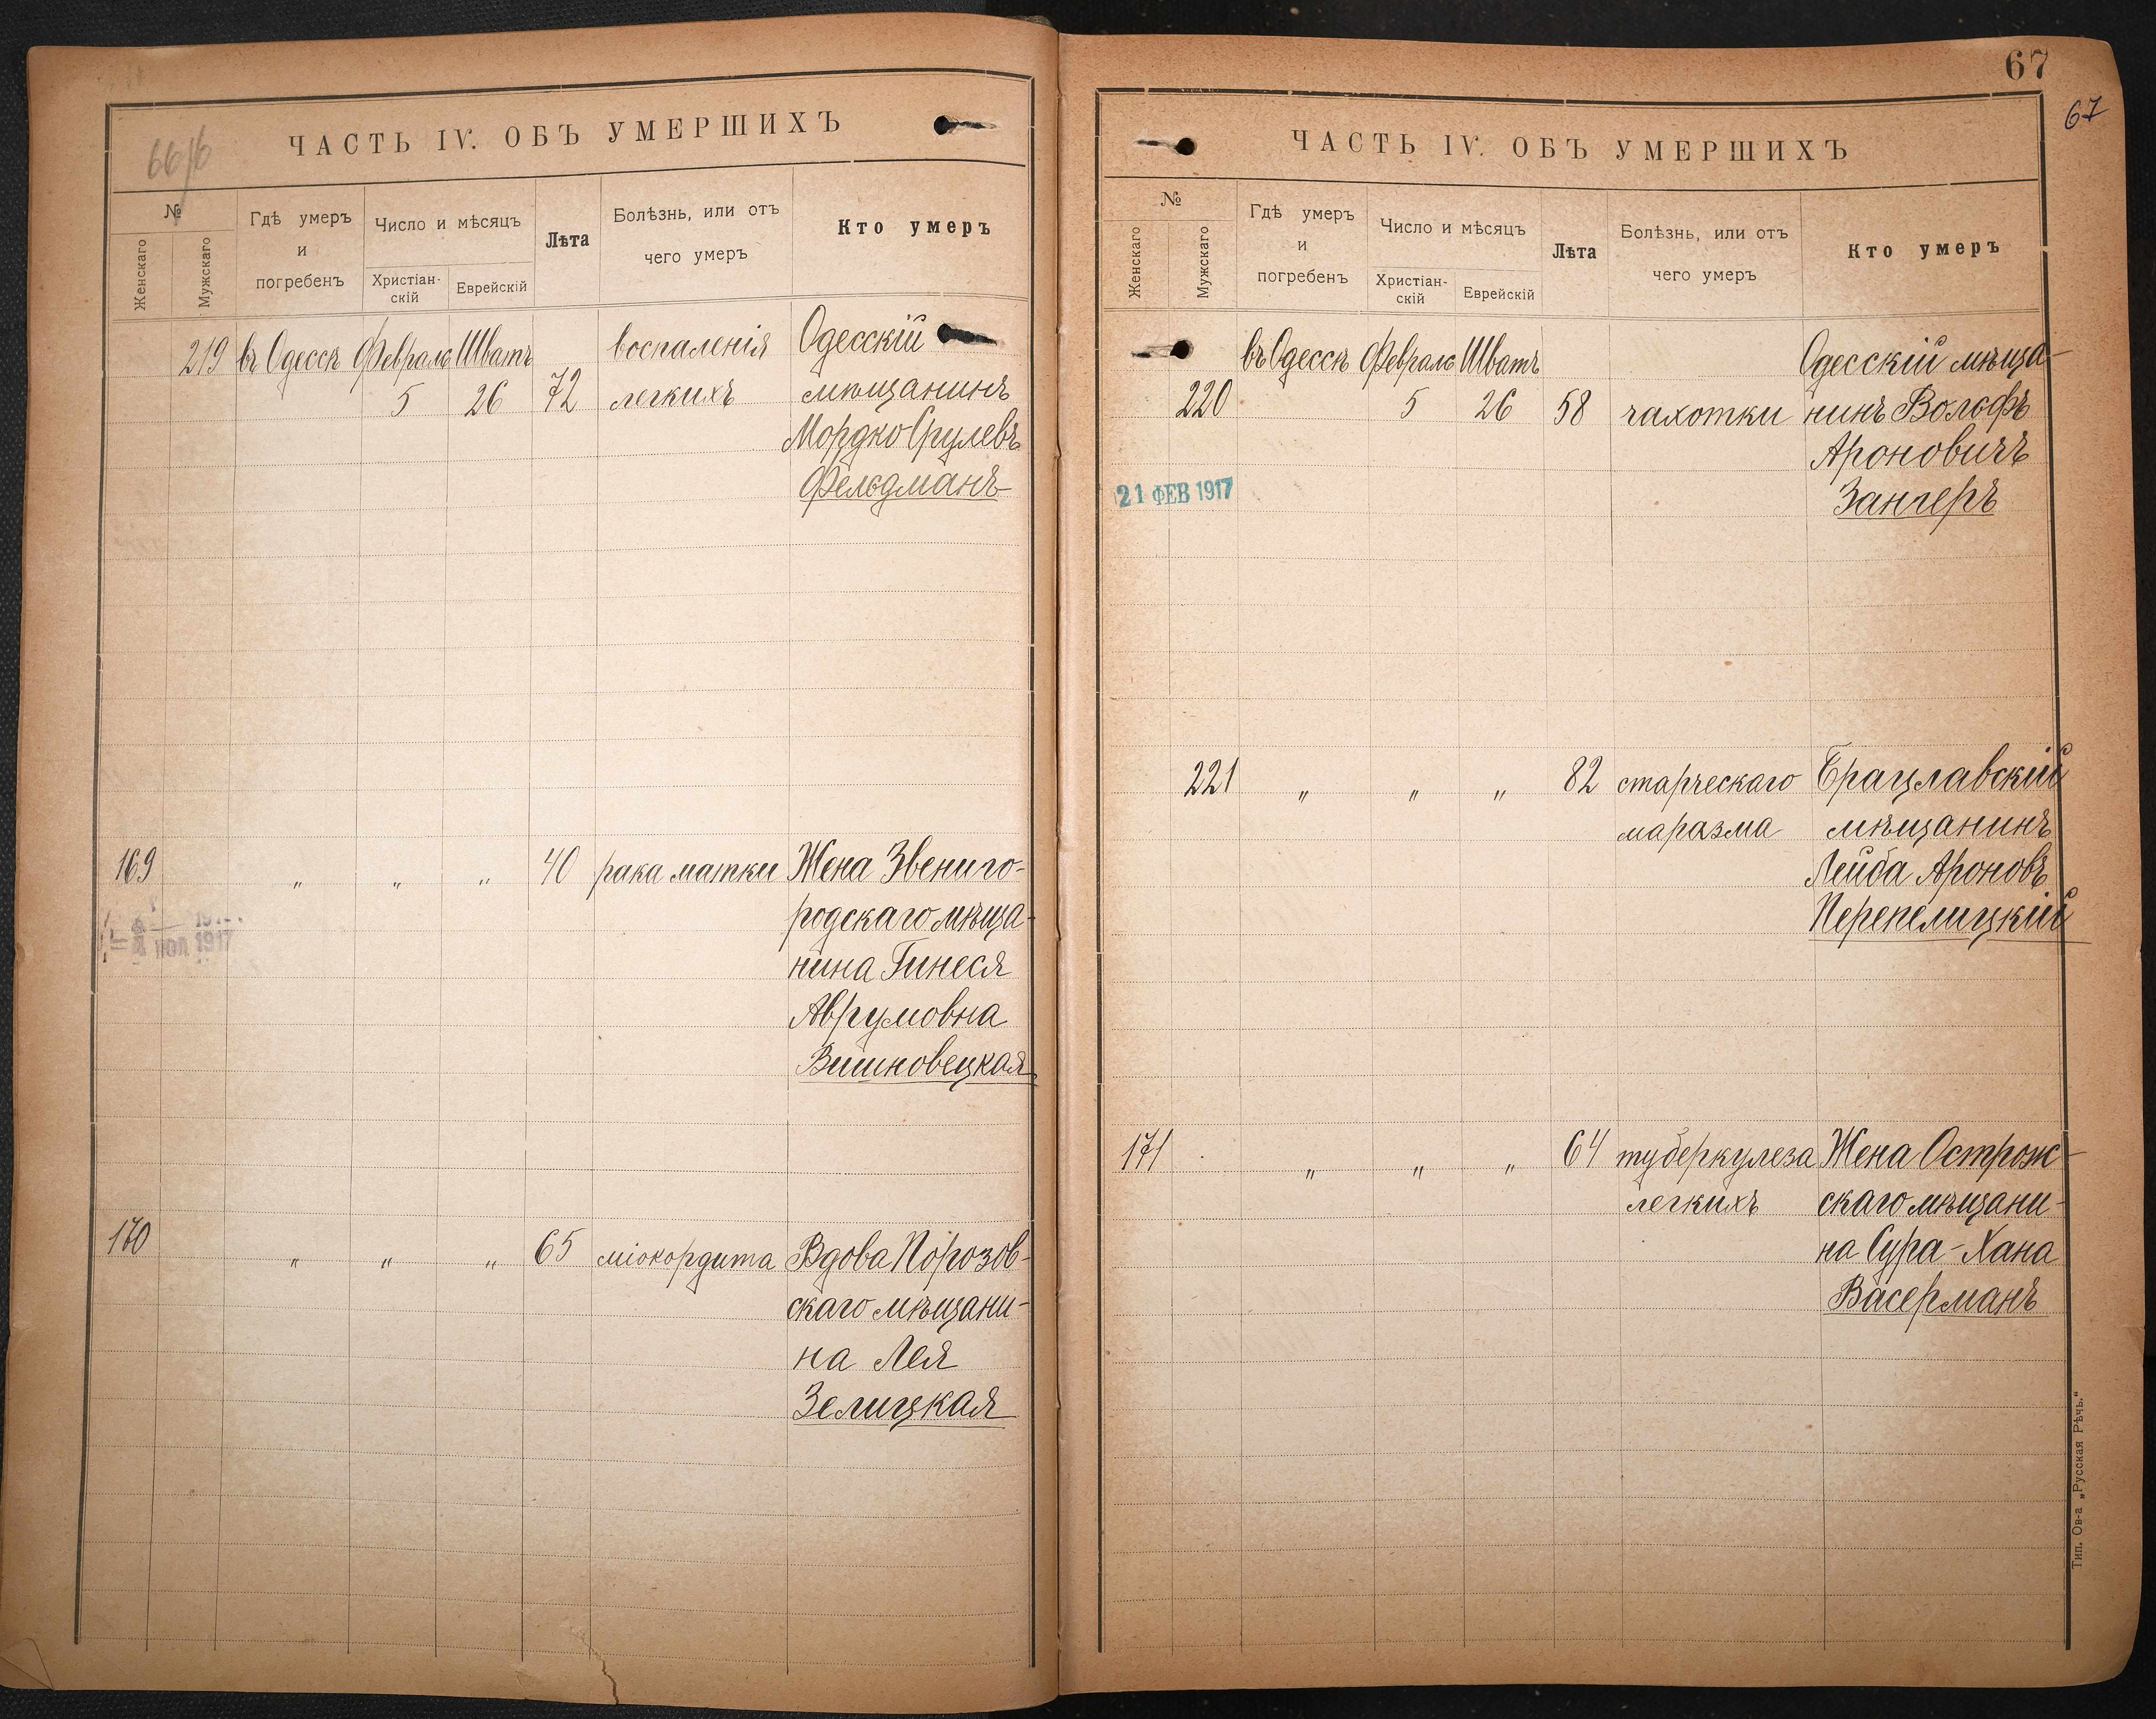 66/б
ЧАСТЬ IV. ОБЪ УМЕРШИХЪ
№
Женскаго
Мужскаго
Гдѣ умеръ
и
погребенъ
Число и мѣсяцъ
Христіан-
скій
Еврейскій
Лѣта
Болѣзнь, или отъ
чего умеръ
Кто умеръ
219 въ Одессѣ Февраля Шватъ воспаленія Одесскій
5 26 72 легкихъ мѣщанинъ
Мордко Срулевъ
Фельдманъ
169 „ „ „ 40 рака матки Жена Звениго-
родскаго мѣща-
1917
нина Гинеся
Аврумовна
Вишновецкая
170 „ „ „ 65 міокордита Вдова Порозов-
скаго мѣщани-
на Лея
Зелицкая
67
67
ЧАСТЬ IV. ОБЪ УМЕРШИХЪ
№
Женскаго
Мужскаго
Гдѣ умеръ
и
погребенъ
Число и мѣсяцъ
Христіан-
скій
Еврейскій
Лѣта
Болѣзнь, или отъ
чего умеръ
Кто умеръ
въ Одессѣ Февраля Шватъ Одесскій мѣща-
220 5 26 58 чахотки нинъ Вольфъ
Ароновичъ
21 ФЕВ 1917 Зангеръ
221 „ „ „ 82 старческаго Брацлавскій
маразма мѣщанинъ
Лейба Ароновъ
Перепелицкій
171 „ „ „ 64 туберкулеза Жена Острож-
легкихъ скаго мѣщани-
на Сура-Хана
Васерманъ
Тип. Ов-а „Русская Рѣчь.“